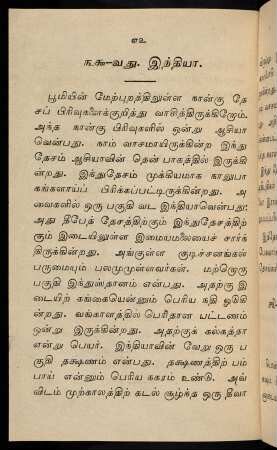 ௭௨
௩.௬-வது. இந்தியா.
பூமியின் மேற்புறத்திலுள்ள நான்கு தே
சப் பிரிவுகளைக்குறித்து வாசித்திருக்கிறோம்.
அந்த நான்கு பிரிவுகளில் ஒன்று ஆசியா
வென்பது. நாம் வாசமாயிருக்கின்ற இந்து
தேசம் ஆசியாவின் தென் பாகத்தில் இருக்கி
ன்றது. இந்துதேசம் முக்கியமாக நாலுபா
கங்களாய்ப் பிரிக்கப்பட்டிருக்கின்றது. அ
வைகளில் ஒரு பகுதி வட இந்தியாவென்பது;
அது திபேத் தேசத்திற்கும் இந்துதேசத்திற்
கும் இடையிலுள்ள இமையமலையைச் சார்ந்
திருக்கின்றது. அங்குள்ள குடிசனங்கள்
பருமையும் பலமுமுள்ளவர்கள். மற்றொரு
பகுதி இந்துஸ்தானம் என்பது. அதற்கு இ
டையிற் கங்கையென்னும் பெரிய நதி ஓடுகி
ன்றது. வங்காளத்தில் பெரிதான பட்டணம்
ஒன்று இருக்கின்றது. அதற்குக் கல்கத்தா
என்று பெயர். இந்தியாவின் வேறு ஒரு ப
குதி தக்ஷணம் என்பது. தக்ஷணத்திற் பம்
பாய் என்னும் பெரிய நகரம் உண்டு. அவ்
விடம் முற்காலத்திற் கடல் சூழ்ந்த ஒரு தீவா